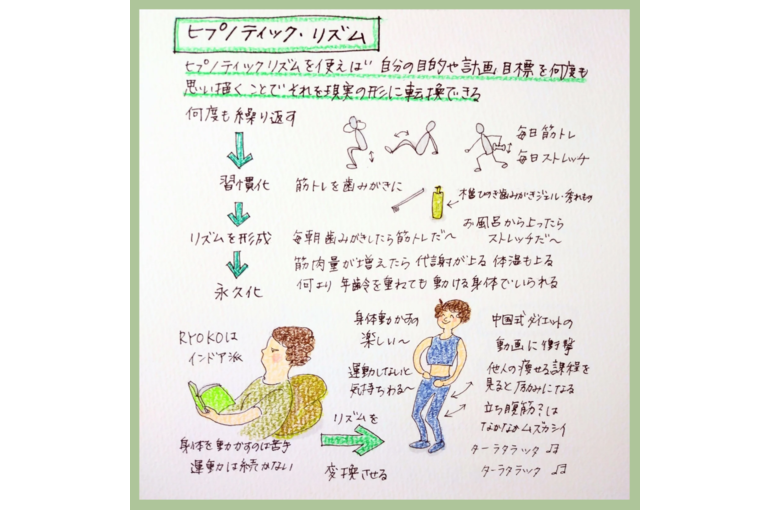 ヒプノティック・リズム
ヒプノティックリズムを使えば 自分の目的や計画、目標を何度も
思い描くことで それを現実の形に転換できる
何度も繰り返す
毎日筋トレ
毎日ストレッチ
習慣化
筋トレを歯みがきに
木曽ひのき歯みがきジェル・秀れもの
リズムを形成
毎朝歯みがきしたら筋トレだ〜
お風呂から上ったら
ストレッチだ〜
筋肉量が増えたら 代謝が上る 体温も上る
何より 年齢を重ねても 動ける身体でいられる
永久化
RYOKOは
インドア派
身体を動かすのは苦手
運動は続かない
リズムを
変換させる
身体動かすの
楽しい〜
運動しないと
気持ちわる〜
中国式ダイエットの
動画に衝撃
他人の痩せる課程を
見ると励みになる
立ち腹筋?は
なかなかムズカシイ
ターラタラッタ ♫
ターラタラック ♫